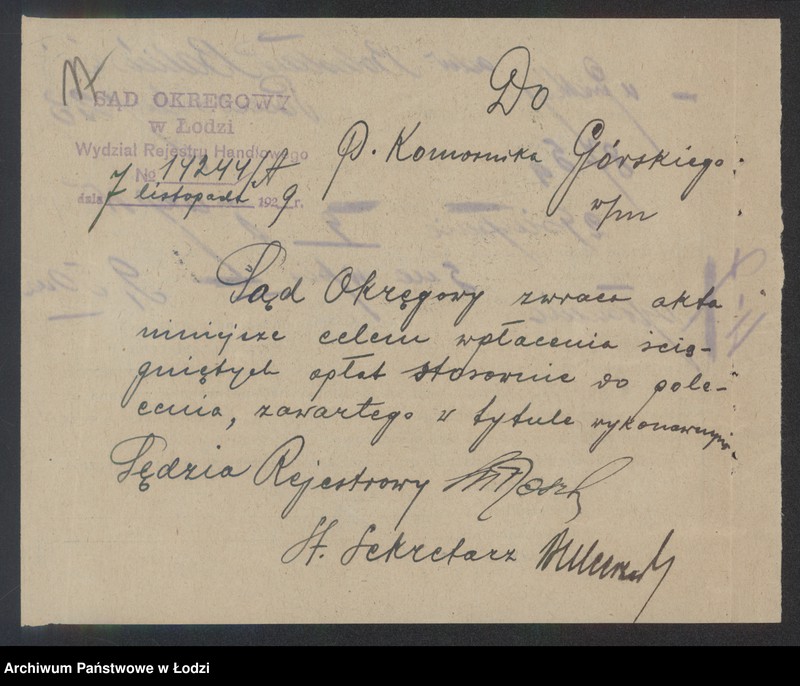 SĄD OKRĘGOWY
w Łodzi
Wydział Rejestru Handlowego
No 14244/A
dnia 7 listopada 1929 r.
Do
P. Komornika Górskiego
w/m
Sąd Okręgowy zwraca akta
niniejsze celem wpłacenia ścią-
gniętych opłat stosownie do pole-
cenia, zawartego w tytule wykonawczym.
Sędzia Rejestrowy
St. Sekretarz
Archiwum Państwowe w Łodzi